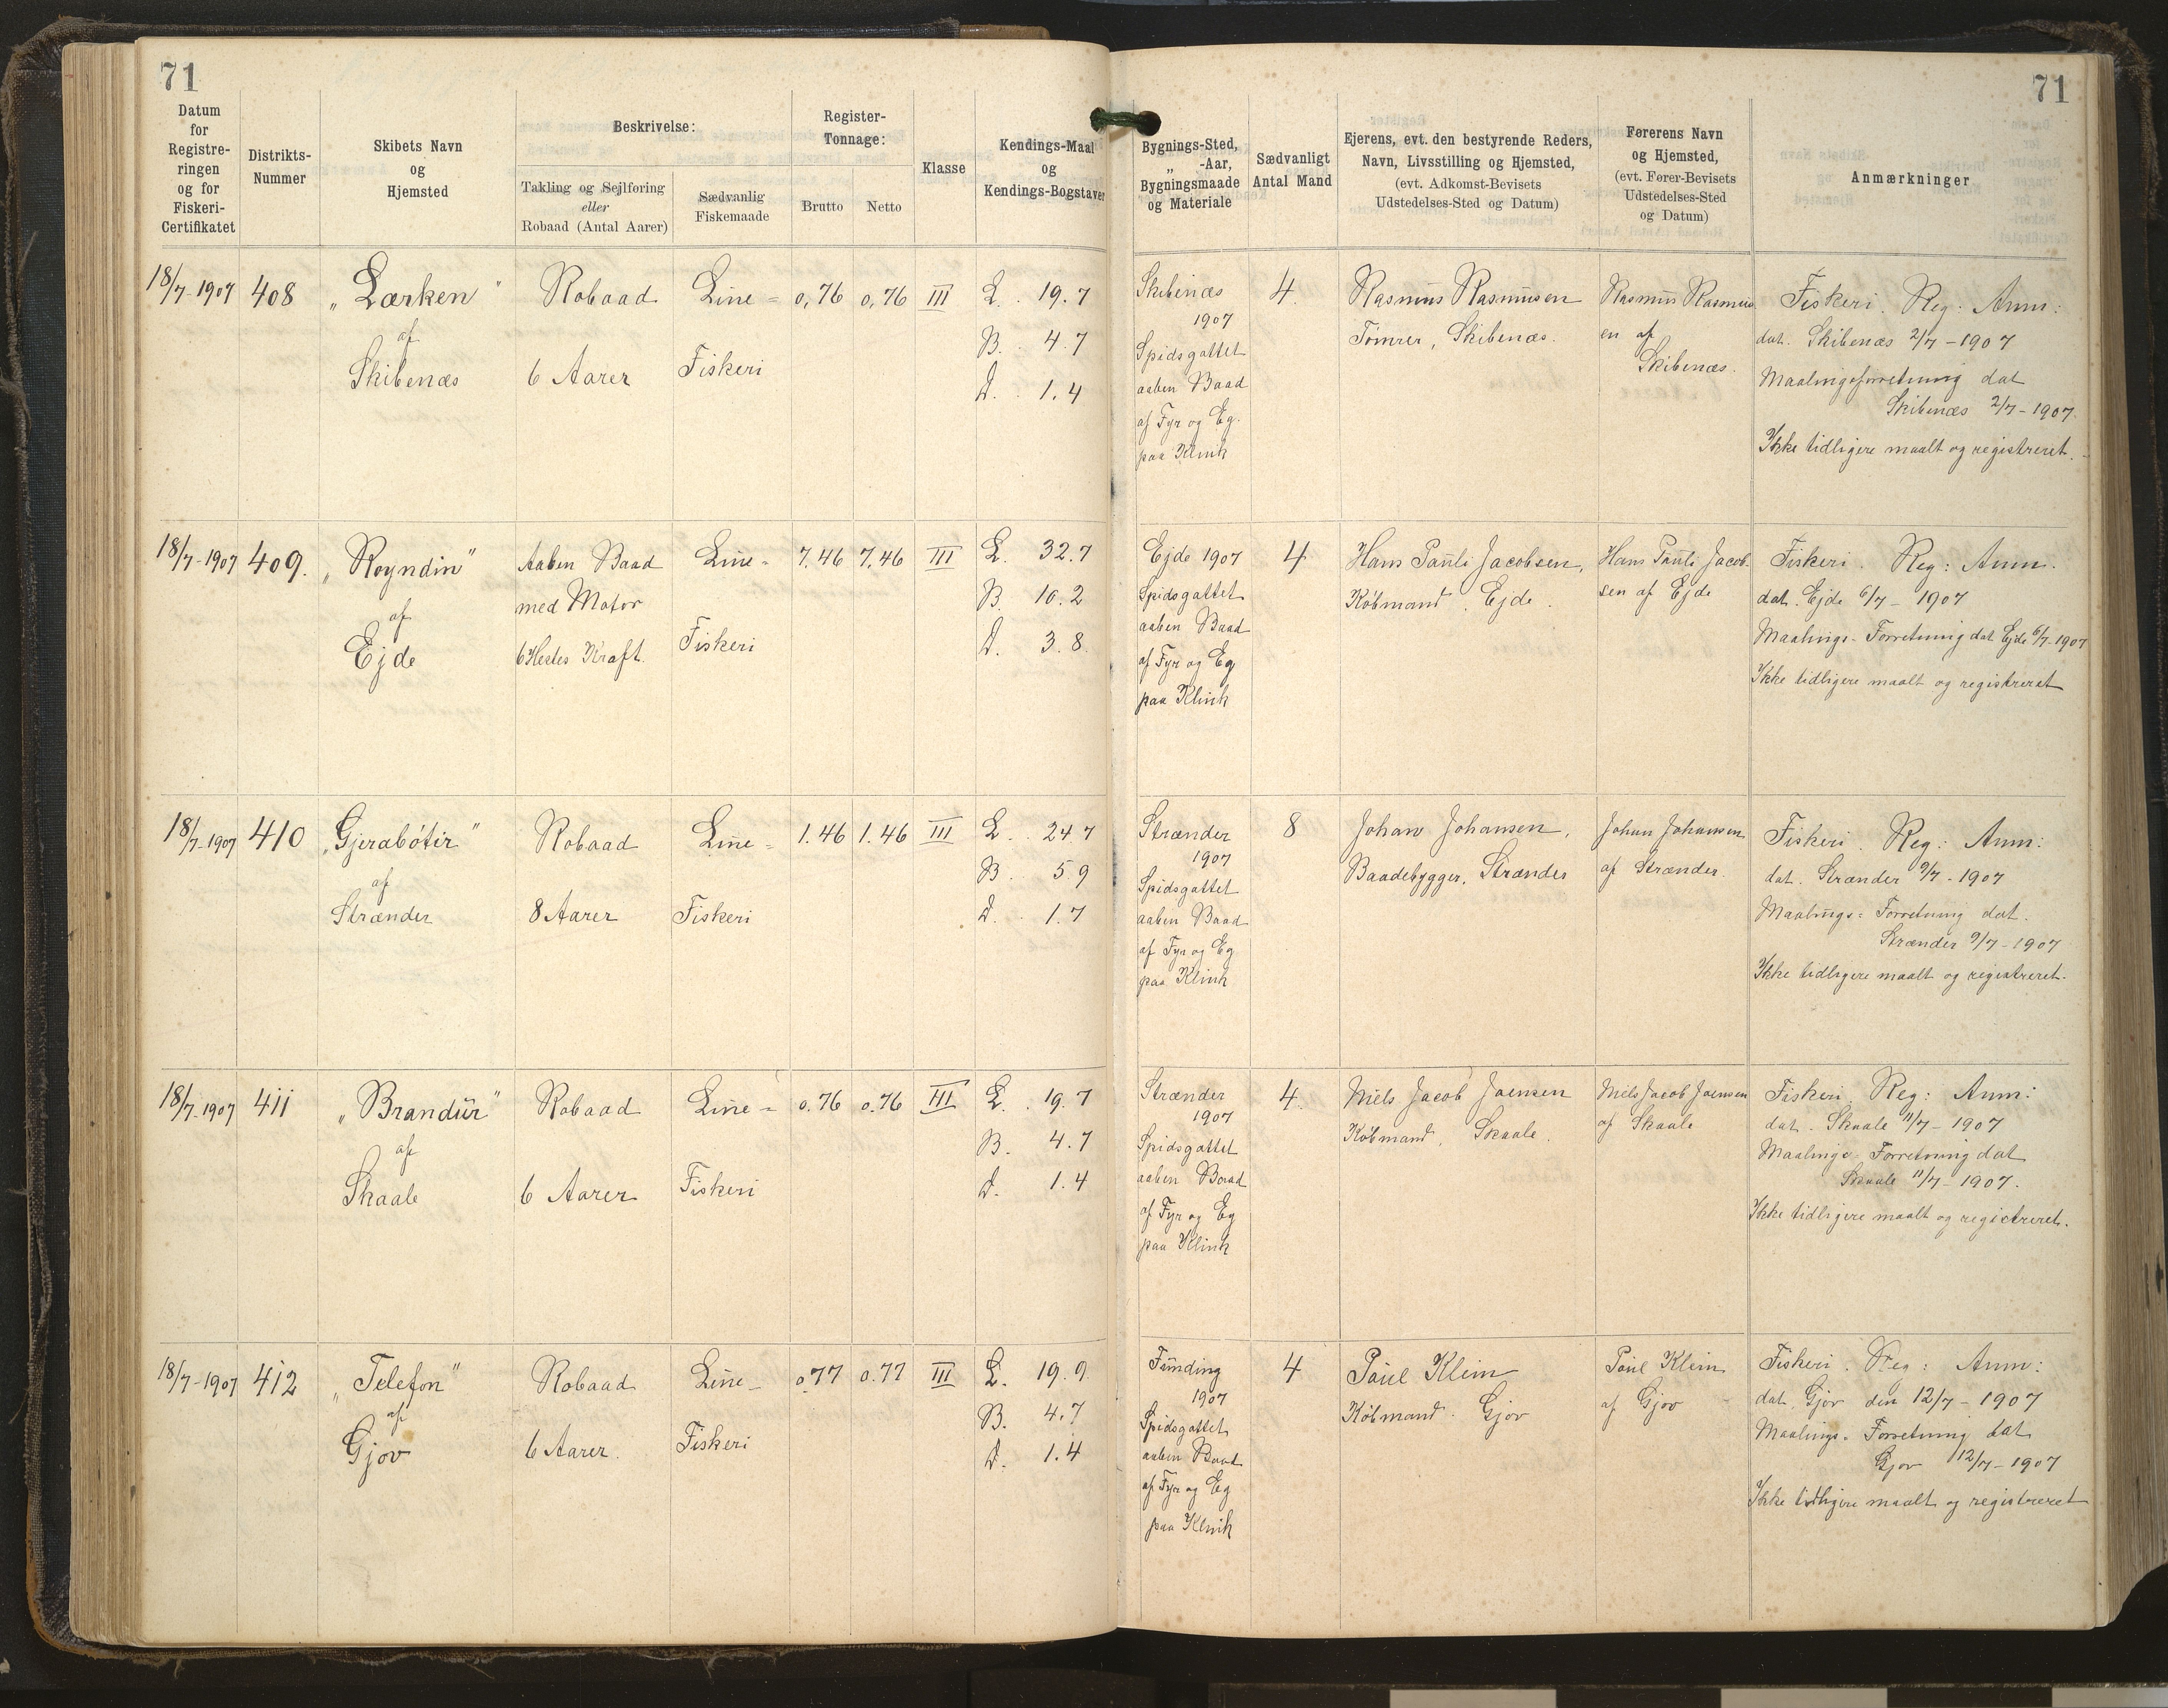 71
71
Datum
for
Registre-
ringen
og for
Fiskeri-
Certifikatet
Distrikts-
Nummer
Skibets Navn
og
Hjemsted
Beskrivelse:
Takling og Sejlføring
eller
Robaad (Antal Aarer)
Sædvanlig
Fiskemaade
Register-
Tonnage:
Brutto
Netto
Klasse
Kendings-Maal
og
Kendings-Bogstaver
Bygnings-Sted,
„ -Aar,
Bygningsmaade
og Materiale
Sædvanligt
Antal Mand
Ejerens, evt. den bestyrende Reders,
Navn, Livsstilling og Hjemsted,
(evt. Adkomst-Bevisets
Udstedelses-Sted og Datum)
Førerens Navn
og Hjemsted,
(evt. Fører-Bevisets
Udstedelses-Sted
og Datum)
Anmærkninger
18/7-1907
408
„Lærken"
af
Skibenæs
Robaad
6 Aarer
Line=
Fiskeri
0,76
0,76
III
L. 19.7
B. 4.7
D. 1.4
Skibenæs
1907
Spidsgattet
aaben Baad
af Fyr og Eg.
paa Klink
4.
Rasmus Rasmusen
Tømrer, Skibenæs.
Rasmus Rasmus
en af
Skibenæs.
Fiskeri. Reg: Anm:
dat. Skibenæs 2/7-1907
Maalingsforretning dat
Skibenæs 2/7-1907.
Ikke tidligere maalt og registreret.
18/7-1907
409.
„Royndin"
af
Ejde
Aaben Baad
med Motor
6 Hestes Kraft.
Line=
Fiskeri
7,46
7,46
III
L. 32.7
B. 10.2
D. 3.8
Ejde 1907
Spidsgattet
aaben Baad
af Fyr og Eg
paa Klink
4
Hans Pauli Jacobsen,
Købmand. Ejde.
Hans Pauli Jacob-
sen af Ejde
Fiskeri. Reg: Anm.
dat. Ejde 6/7-1907
Maalings-Forretning dat Ejde 6/7-1907
Ikke tidligere maalt og registreret
18/7-1907
410
„Gjerabótir"
af
Strænder
Robaad
8 Aarer
Line=
Fiskeri
1.46
1.46
III
L. 24 7
B. 5 9
D. 1.7
Strænder
1907
Spidsgattet
aaben Baad
af Fyr og Eg
paa Klink
8
Johan Johansen,
Baadebygger, Strænder
Johan Johansen
af Strænder.
Fiskeri. Reg: Anm:
dat. Strænder 9/7-1907
Maalings= Forretning dat.
Strænder 9/7-1907
Ikke tidligere maalt og registreret.
18/7-1907
411
„Brandur"
af
Skaale
Robaad
6 Aarer
Line=
Fiskeri
0.76
0.76
III
L. 19.7
B. 4.7
D. 1.4
Strænder
1907
Spidsgattet
aaben Baad
af Fyr og Eg
paa Klink
4.
Niels Jacob Joensen
Købmand, Skaale.
Niels Jacob Joensen
af Skaale
Fiskeri. Reg: Anm:
dat. Skaale 11/7-1907
Maalings-Forretning dat
Skaale 11/7-1907.
Ikke tidligere maalt og registreret.
18/7-1907
412
„Telefon"
af
Gjov
Robaad
6 Aarer.
Line-
Fiskeri
0.77
0.77
III
L. 19.9.
B. 4.7
D. 1.4
Funding
1907
Spidsgattet
aaben Baad
af Fyr og Eg
paa Klink
4
Poul Klein
Købmand. Gjov
Poul Klein
af Gjov
Fiskeri. Reg: Anm:
dat. Gjov den 12/7-1907
Maalings-Forretning dat
Gjov 12/7-1907
Ikke tidligere maalt og registreret